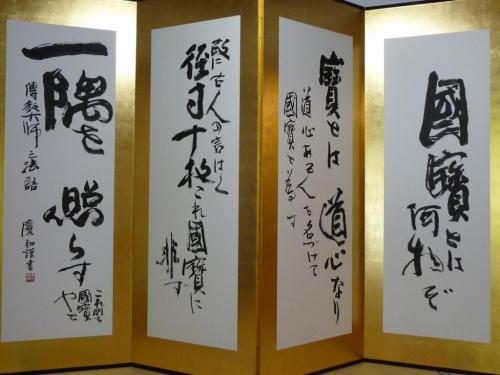 國寶とは
何物ぞ
寶とは道心なり
道心ある人を名づけて
國寶と為す
故に古人の言はく
径寸十枚これ國寶に
非ず
一隅を
照らす
これ則ち
國寶
やと
傳教大師之法語
謹書